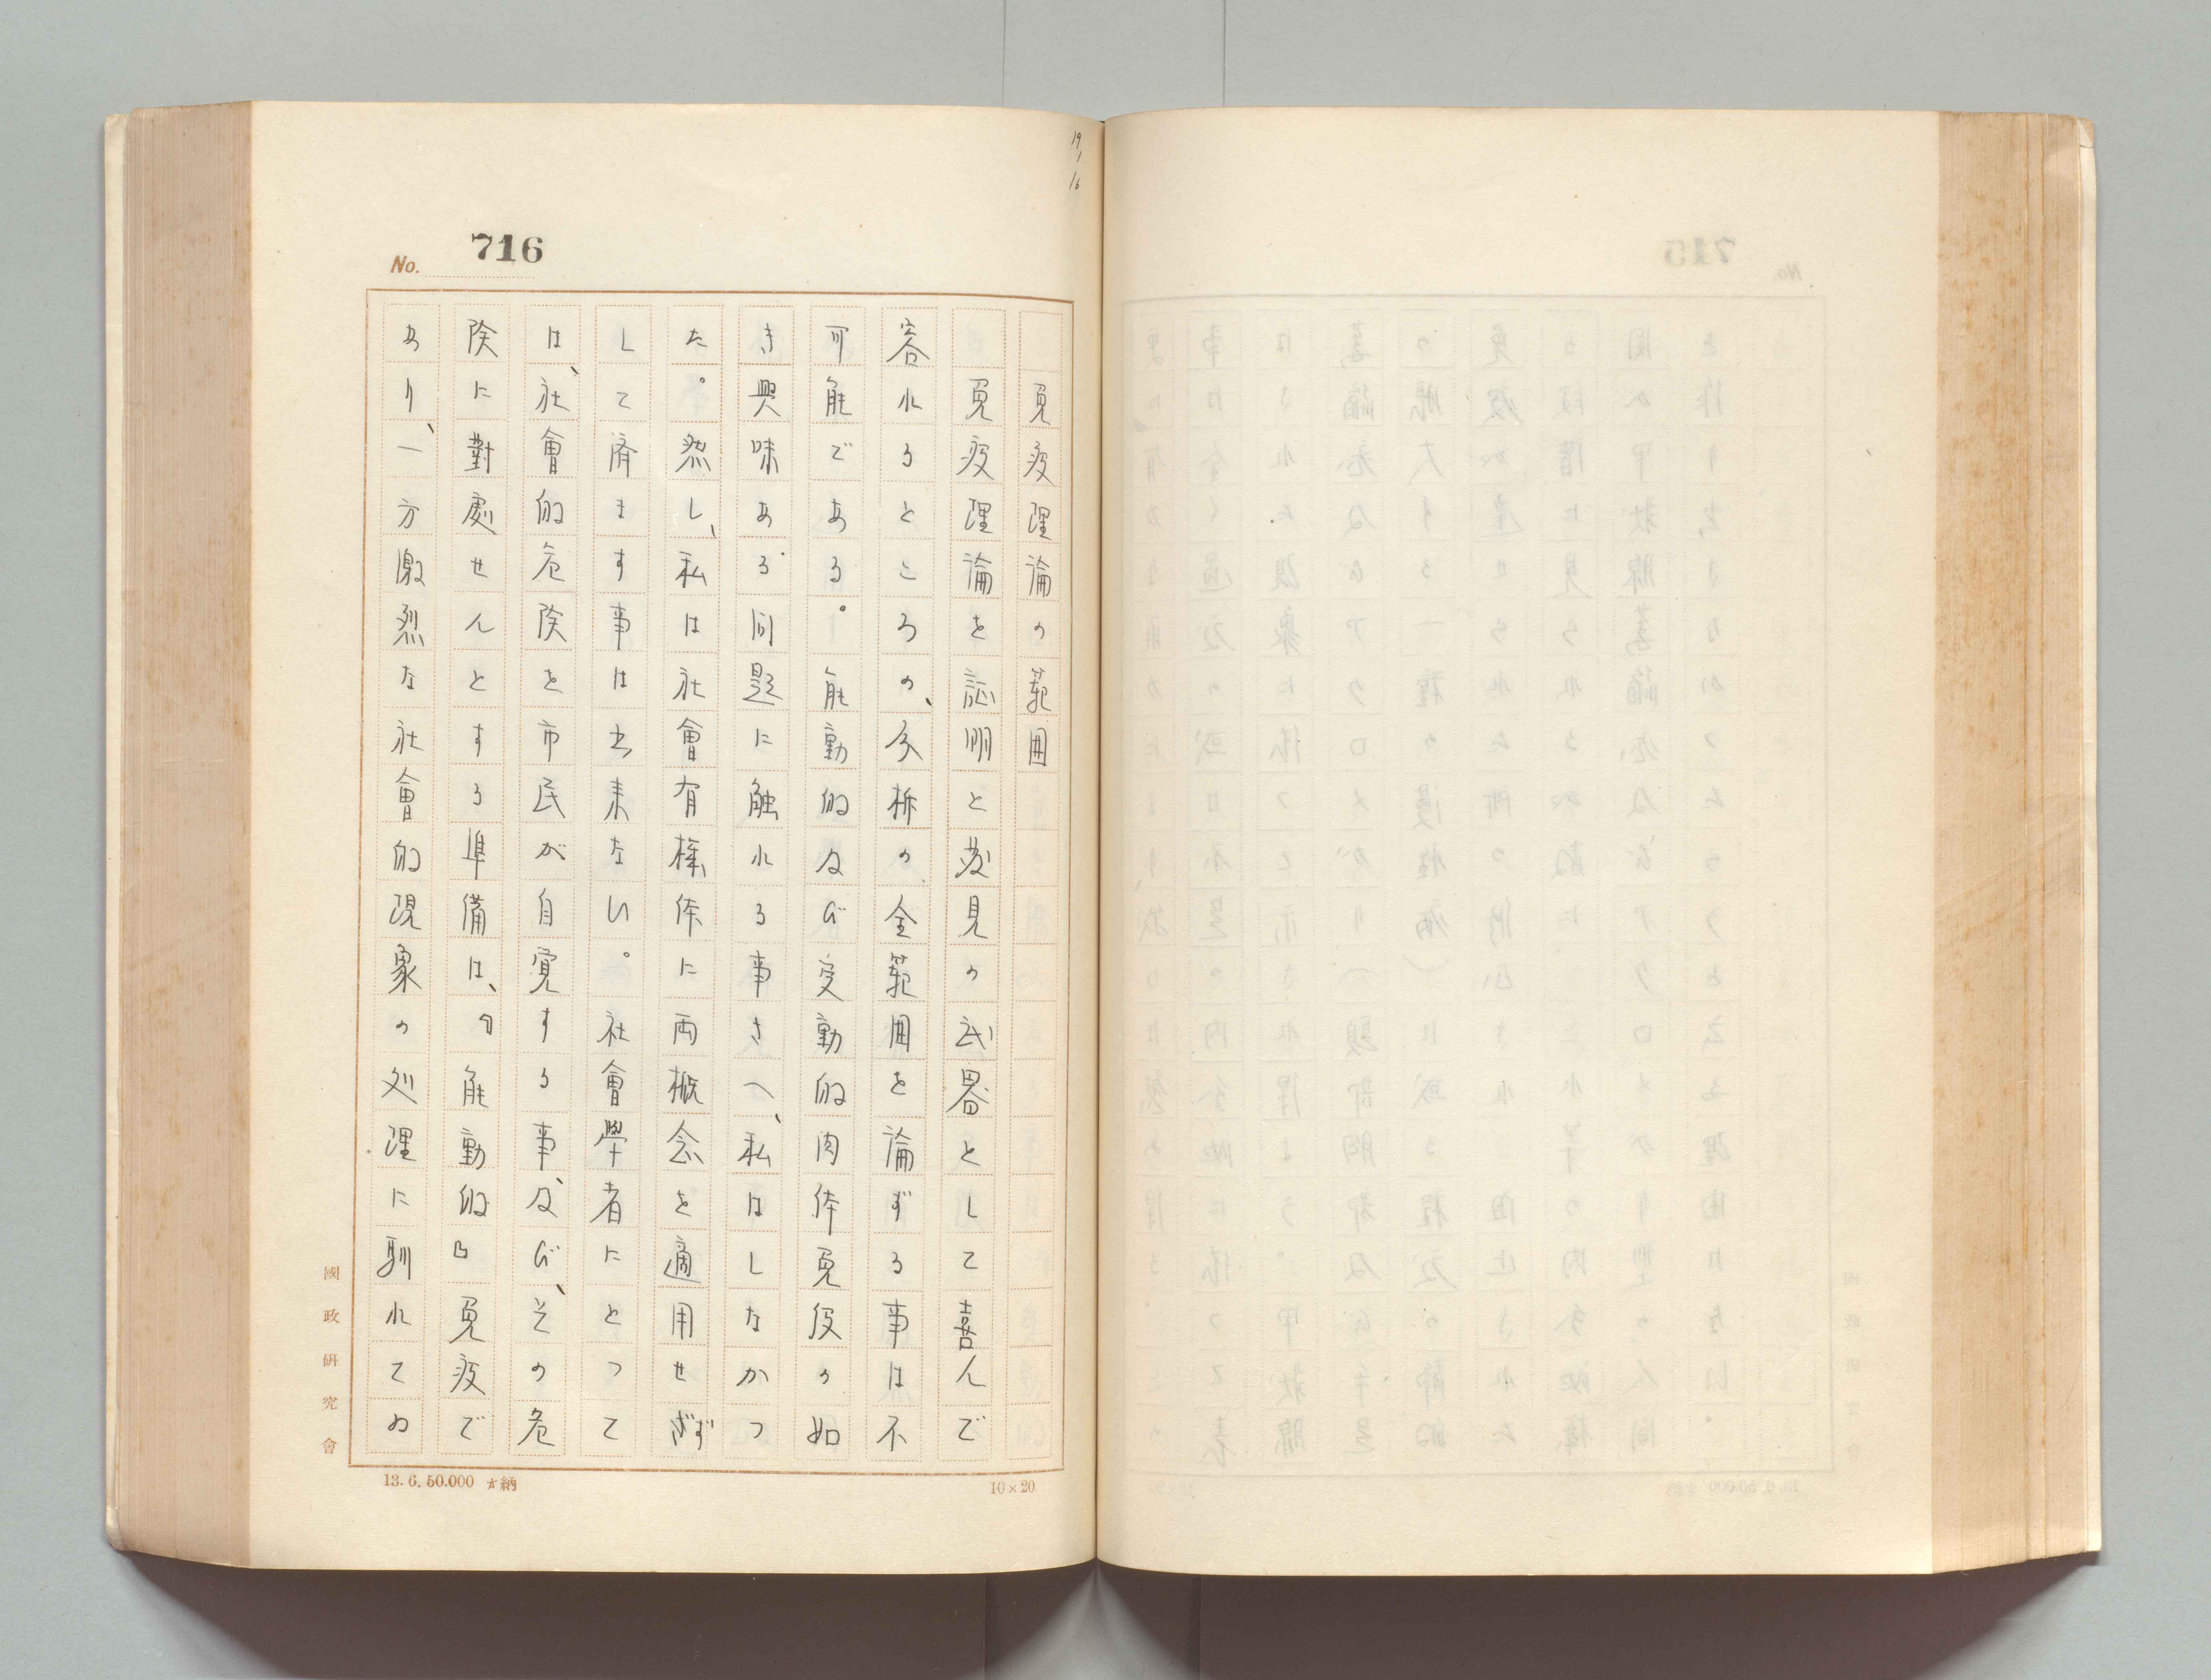 19/16
No. 716
免疫理論の範囲
免疫理論を証明と発見の武器として喜んで
容れるところの、分析の全範囲を論ずる事は不
可能である。能動的及び受動的肉体免役の如
き興味ある問題に触れる事さへ、私はしなかつ
た。然し、私は社會有機体に両概念を適用せず
して済ます事は出来ない。社會學者にとつて
は、社會的危険を市民が自覚する事及び、その危
険に對處せんとする準備は、『能動的』免疫で
あり、一方激烈な社會的現象の処理に馴れてゐ
國政研究會
13. 6. 50.000 納
10×20